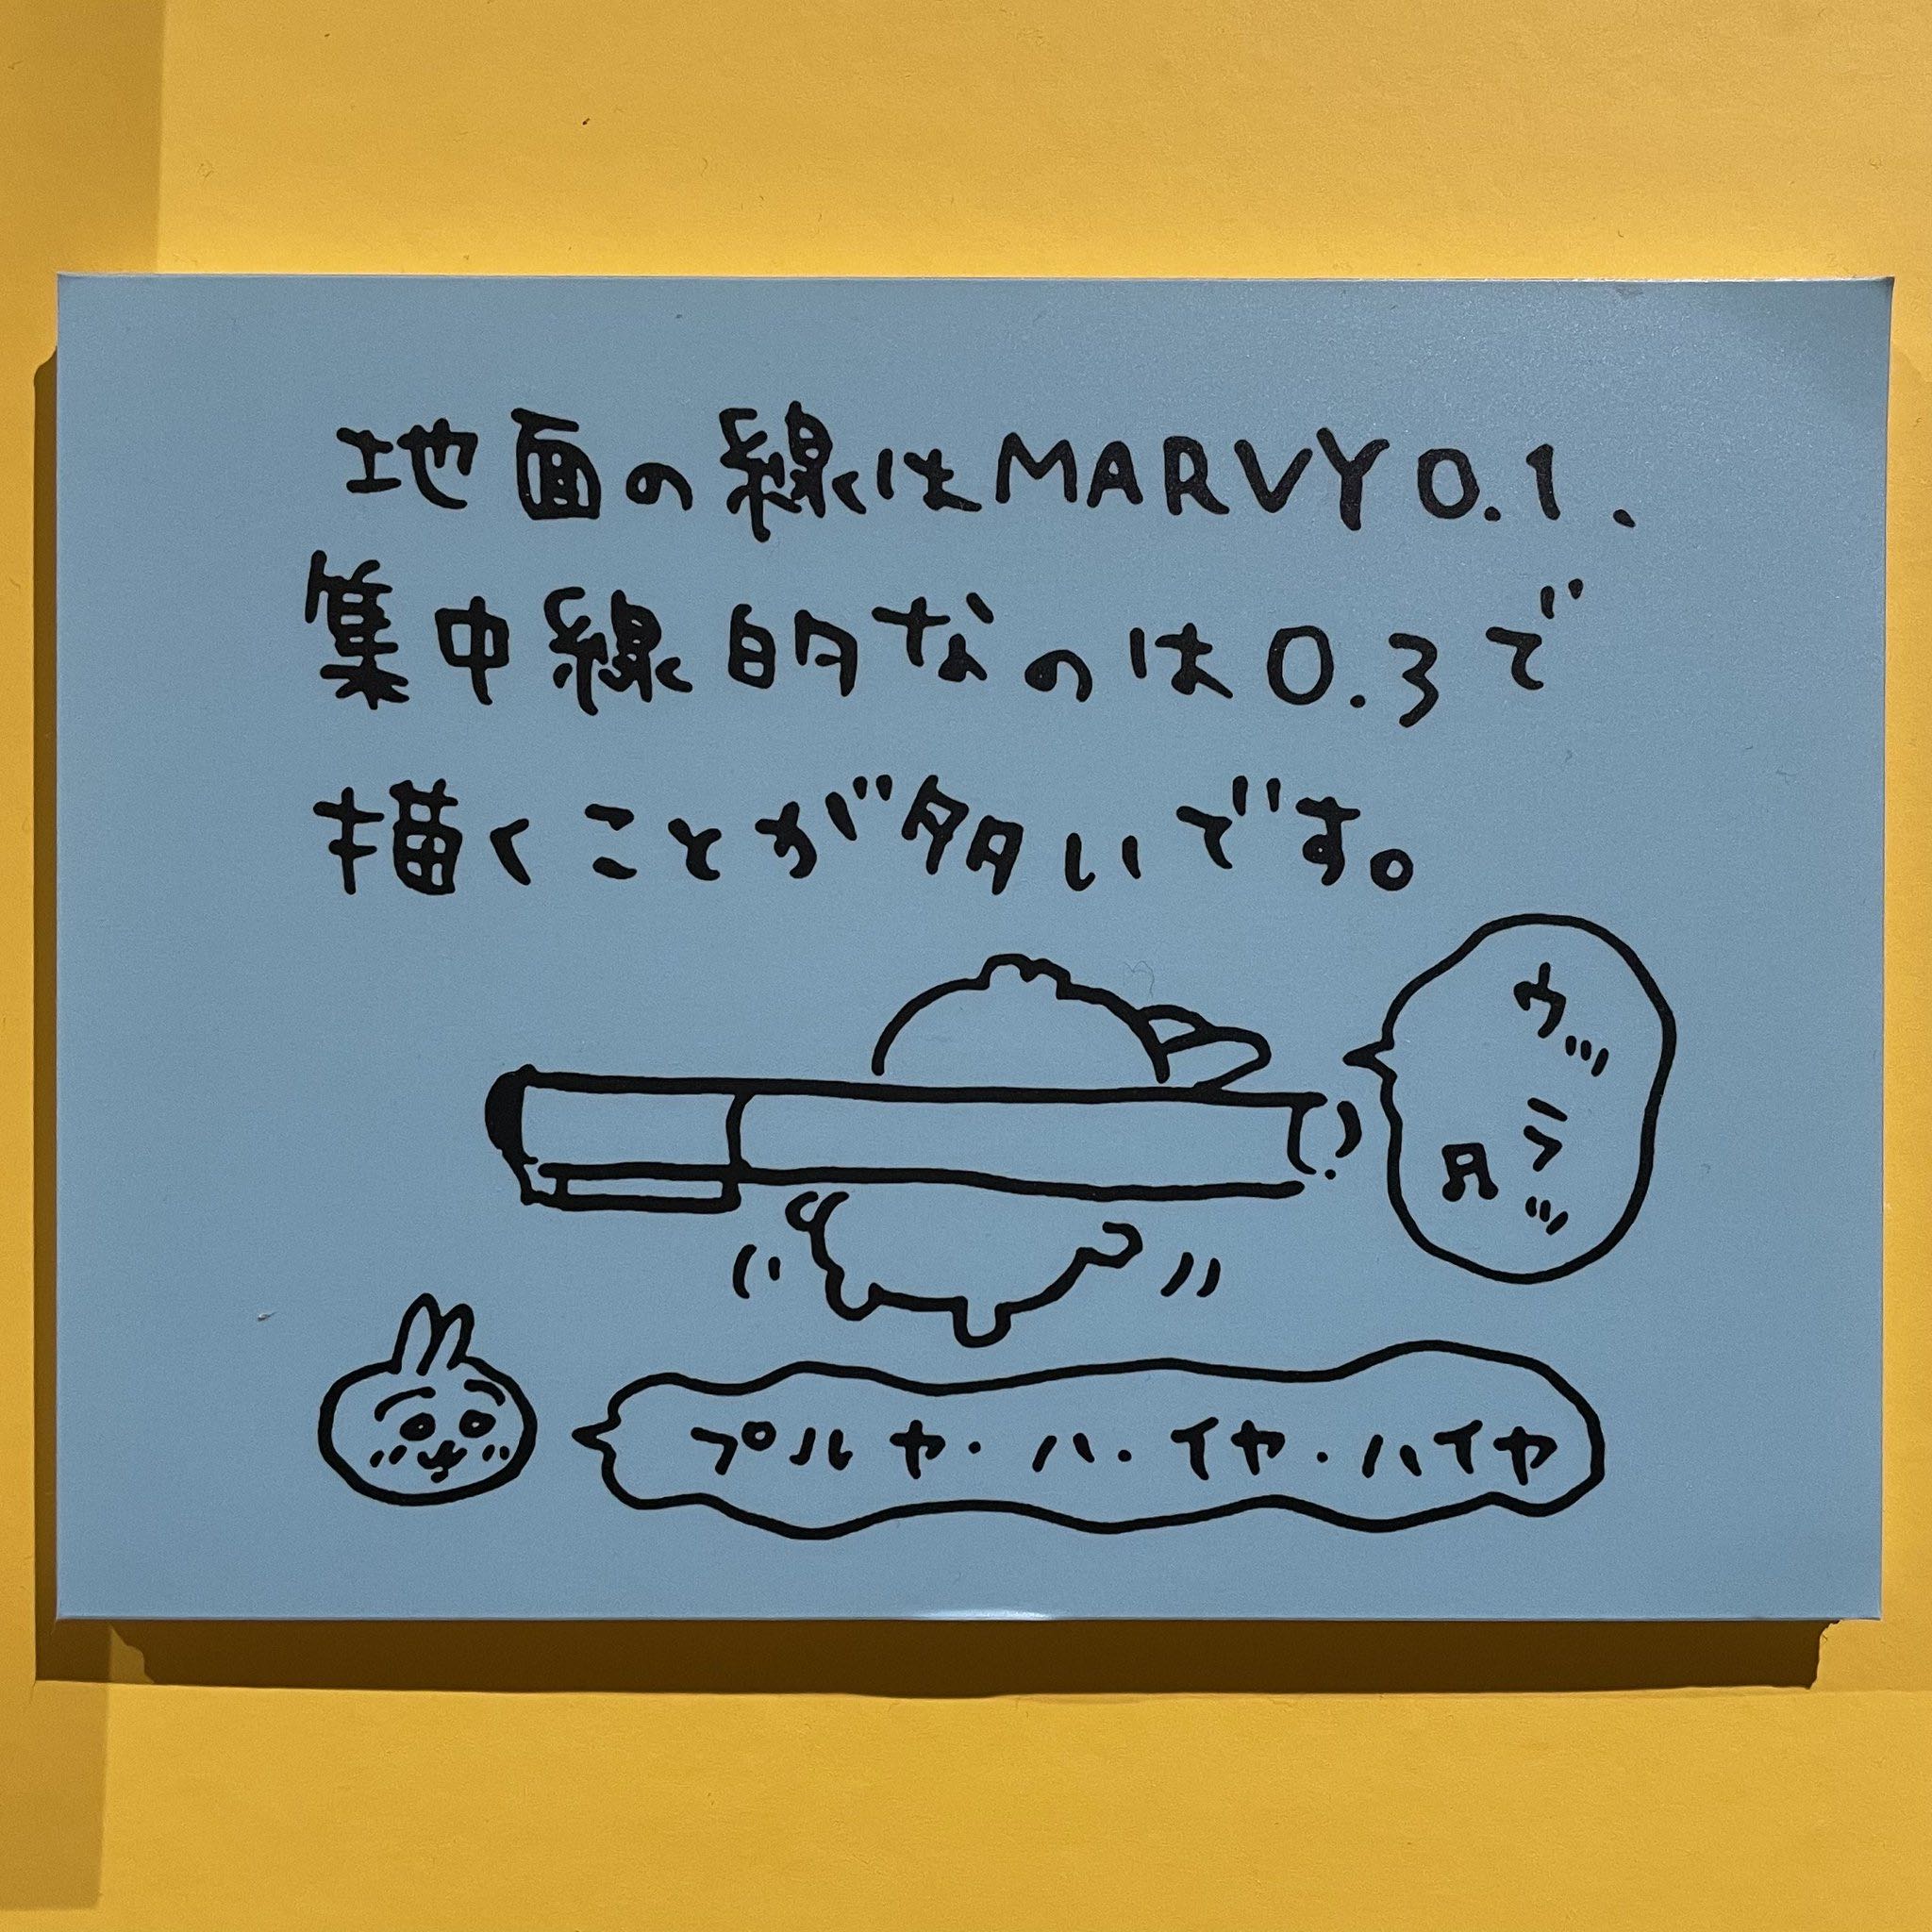 地面の線はMARVY0.1、
集中線的なのは0.3で
描くことが多いです。
ウッ
ラッ
♫
プルヤ・ハ・イヤ・ハイヤ